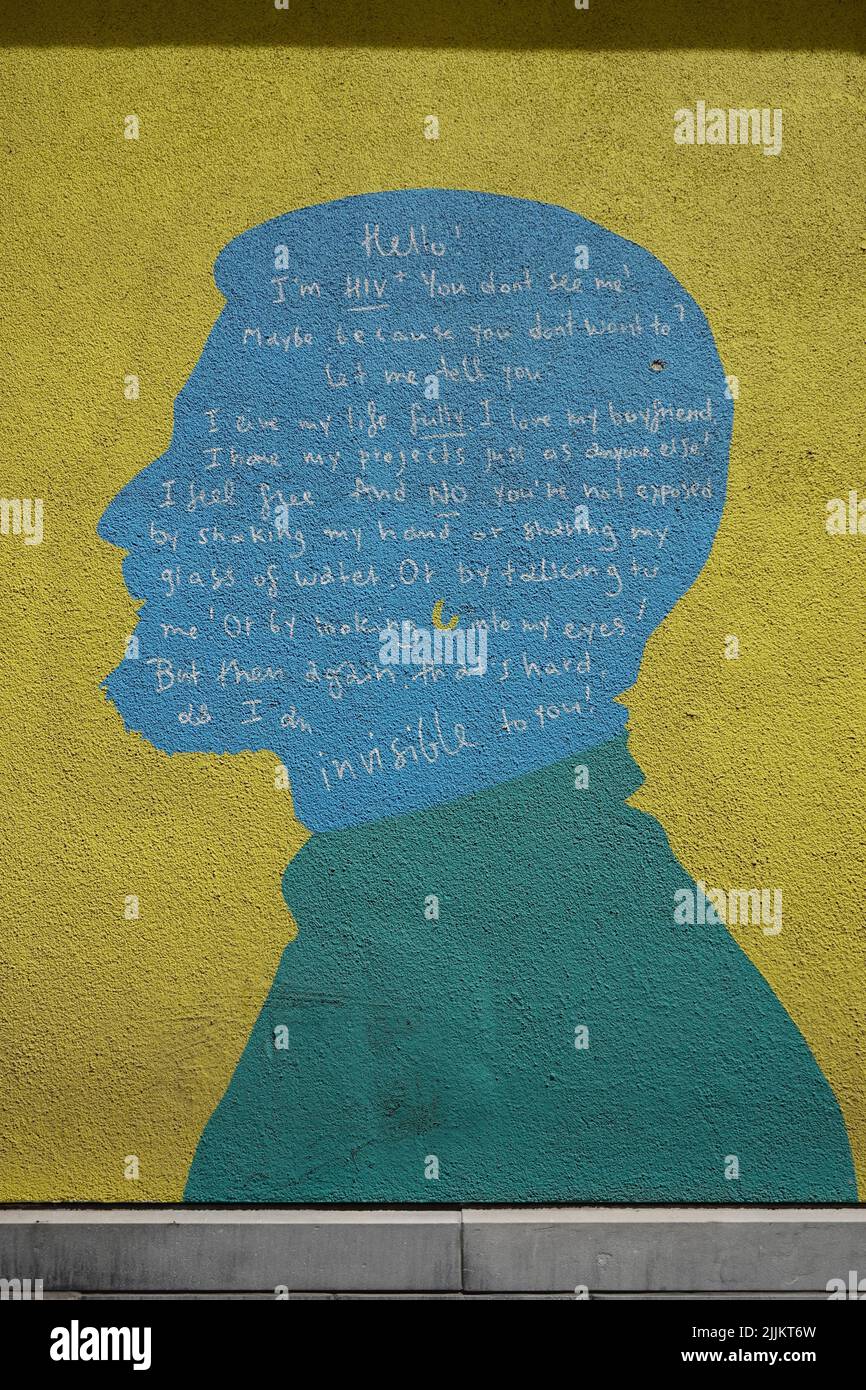 Hello!
I'm HIV+ You dont see me!
Maybe because you dont want to?
Let me tell you
I live my life fully I love my boyfriend
I have my projects just as anyone else!
I feel free And NO you're not exposed
by shaking my hand or sharing my
glass of water. Or by talking to
me! Or by looking into my eyes!
But then again, that's hard,
as I am
invisible to you!
alamy
Image ID: 2JJKT6W
www.alamy.com